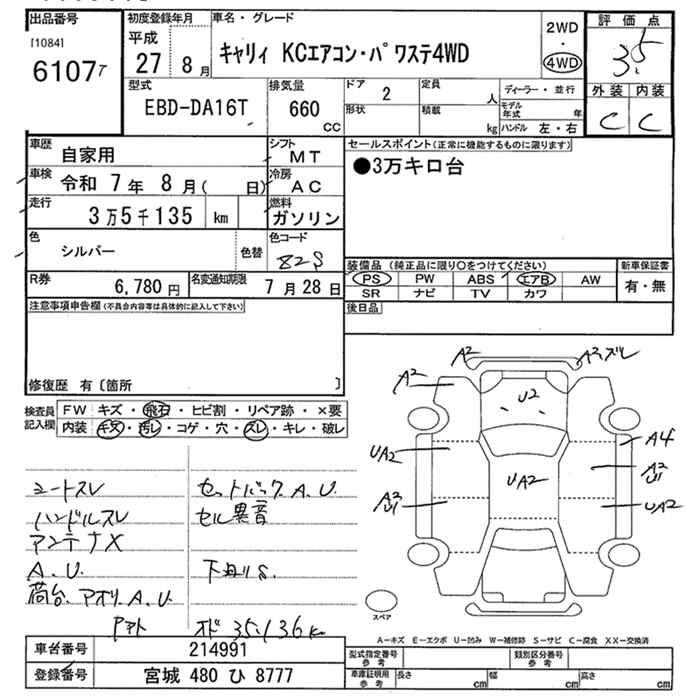 出品番号 初度登録年月 車名・グレード 評価点
[1084] 平成 2WD
6107 27年 8月 キャリィ KCエアコン・パワステ4WD ・ 4WD 3.5
型式 排気量 ドア 2 定員 人 ディーラー・並行 外装 内装
EBD-DA16T 660 cc 形状 積載 kg モデル年式 年 C C
ハンドル 左・右
車歴 自家用 シフト MT セールスポイント(正常に機能するものに限ります)
車検 令和 7年 8月( 日) 冷房 AC ●3万キロ台
走行 3万5千135 km 燃料 ガソリン
色 シルバー 色替 色コード 82S
装備品 (純正品に限り○をつけてください) 新車保証書
R券 6,780円 名変通知期限 7月28日 PS PW ABS エアB AW 有・無
SR ナビ TV カワ
注意事項申告欄(不具合内容等は具体的に記入して下さい) 後日品
修復歴 有〔箇所 〕
検査員記入欄 FW キズ・飛石・ヒビ割・リペア跡・×要
内装 キズ・汚レ・コゲ・穴・スレ・キレ・破レ
A2 A2.ズレ
A2 U2
UA2 UA2 A4
A2 U1
A2 U1 UA2
シートスレ セットバックA.U.
ハンドルスレ セル異音
アンテナX
A.U. 下回りS.
荷台、アオリA.U.
スペア
オド 35.136K
A-キズ E-エクボ U-凹み W-補修跡 S-サビ C-腐食 XX-交換済
車台番号 214991 型式指定番号 参考 類別区分番号 参考
登録番号 宮城 480 ひ 8777 車庫証明用 参考 長さ cm 幅 cm 高さ cm